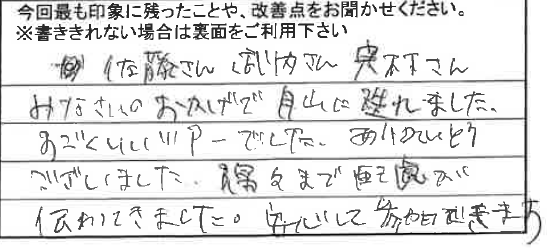 今回最も印象に残ったことや、改善点をお聞かせください。
※書ききれない場合は裏面をご利用下さい
佐藤さん 武内さん 奥林さん
みなさんのおかげで月山に登れました。
すごくいいツアーでした。ありがとう
ございました。隅々まで配慮が
伝わってきました。安心して